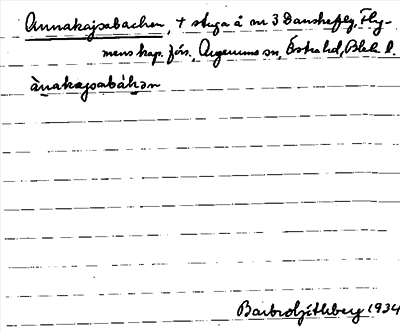 Annakajsabacken, + stuga å nr 3 Danskefly, Fly-
menshap. förs., Augerums sn, Östra hd, Blek. l.
ànakajsabákən
Barbro Ljithberg 1934